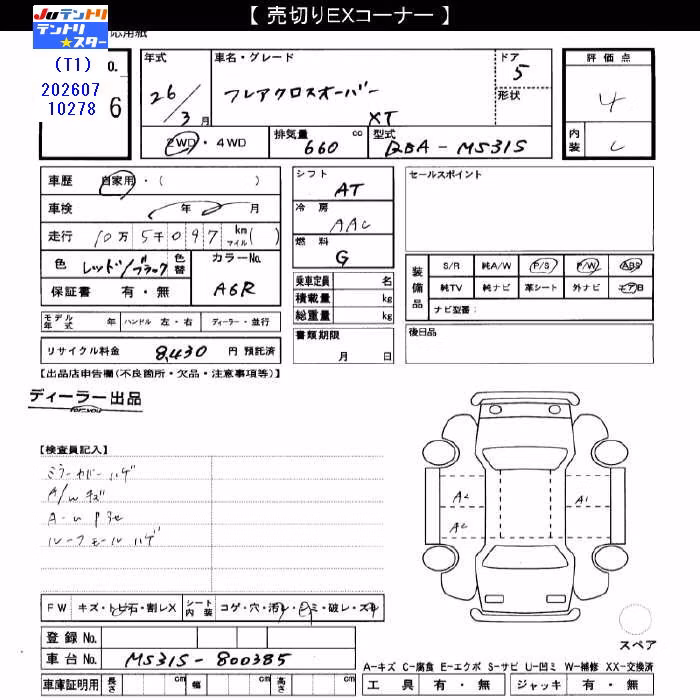 【 売切りEXコーナー 】
JUテントリ
テントリ★スター
応用紙
(T1)
202607
10278
O.
6
年式
26/3月
車名・グレード
フレアクロスオーバー
XT
ドア
5
形状
2WD・4WD
排気量 660 cc
型式 DBA-MS31S
評価点
4
内装
C
車歴 自家用・( )
車検 年 月
走行 10万5千097 km マイル( )
色 レッド/ブラック 色替
カラーNo. A6R
保証書 有・無
モデル年式 年 ハンドル 左・右 ディーラー・並行
リサイクル料金 8,430 円 預託済
シフト
AT
冷房
AAC
燃料
G
乗車定員 名
積載量 kg
総重量 kg
書類期限
月 日
セールスポイント
装備品
S/R 純A/W P/S P/W ABS
純TV 純ナビ 革シート 外ナビ エアB
ナビ型番:
後日品
【出品店申告欄(不良箇所・欠品・注意事項等)】
ディーラー出品
for-you
【検査員記入】
ミラーカバーハゲ
A/Wキズ
ルーフモールハゲ
A2
A2
A1
FW キズ・トビ石・割レX
シート内装 コゲ・穴・汚レ・シミ・破レ・スレ
登録No.
車台No. MS31S-800385
車庫証明用 長さ cm 幅 cm 高さ cm
スペア
A-キズ C-腐食 E-エクボ S-サビ U-凹ミ W-補修 XX-交換済
工具 有・無 ジャッキ 有・無